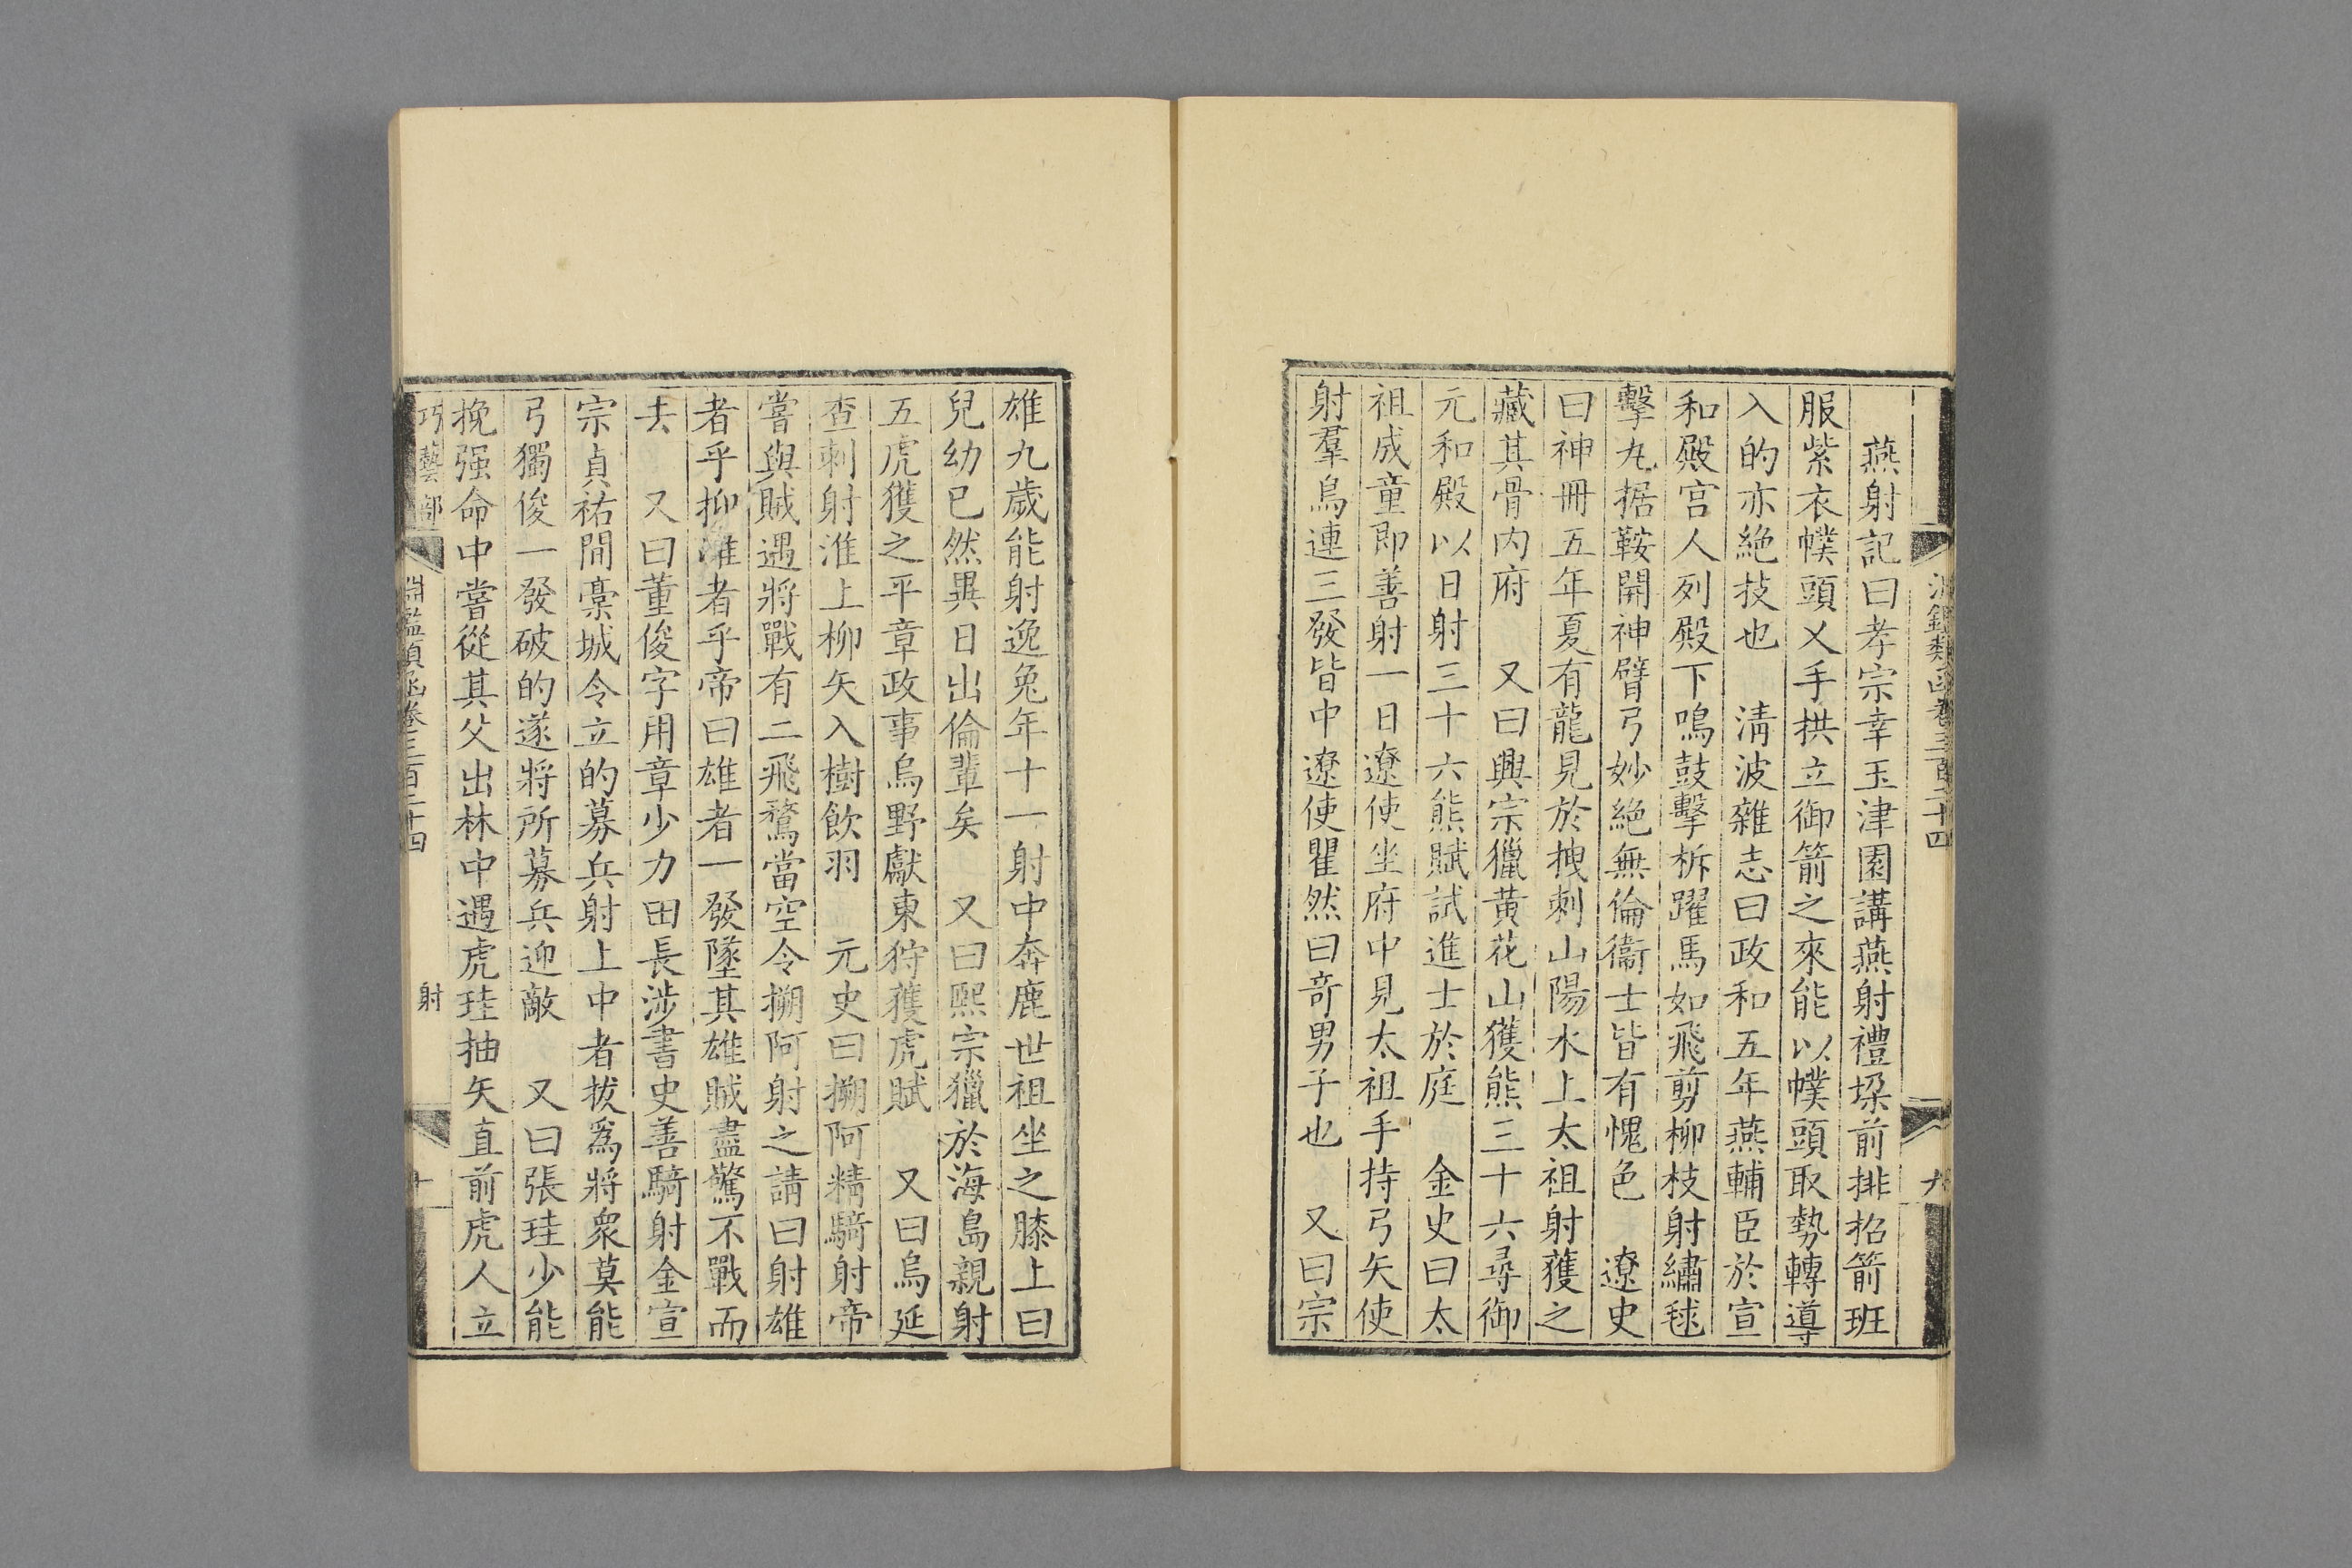 燕射記曰孝宗幸玉津園講燕射禮垜前排招箭班
服紫衣幞頭乂手拱立御箭之來能以幞頭取勢轉導
入的亦絕技也 清波雜志曰政和五年燕輔臣於宣
和殿宮人列殿下鳴鼓擊柝躍馬如飛剪柳枝射繡毬
擊丸据鞍開神臂弓妙絕無倫衞士皆有愧色 遼史
曰神冊五年夏有龍見於拽剌山陽水上太祖射獲之
藏其骨内府 又曰興宗獵黃花山獲熊三十六尋御
元和殿以日射三十六熊賦試進士於庭 金史曰太
祖成童即善射一日遼使坐府中見太祖手持弓矢使
射羣鳥連三發皆中遼使瞿然曰奇男子也 又曰宗
雄九歲能射逸兔年十一射中奔鹿世祖坐之膝上曰
兒幼已然異日出倫輩矣 又曰熙宗獵於海島親射
五虎獲之平章政事烏野獻東狩獲虎賦 又曰烏延
查剌射淮上柳矢入樹飲羽 元史曰搠阿精騎射帝
嘗與賊遇將戰有二飛鶩當空令搠阿射之請曰射雄
者乎抑雌者乎帝曰雄者一發墜其雄賊盡驚不戰而
去 又曰董俊字用章少力田長涉書史善騎射金宣
宗貞祐間藁城令立的募兵射上中者拔爲將衆莫能
弓獨俊一發破的遂將所募兵迎敵 又曰張珪少能
挽强命中嘗從其父出林中遇虎珪抽矢直前虎人立
巧藝部 淵鑑類函卷三百二十四 射 十